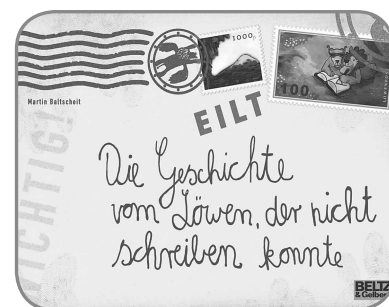 1000,-
100
Martin Baltscheit
EILT
WICHTIG!
Die Geschichte
vom Löwen, der nicht
schreiben konnte
BELTZ
& Gelberg